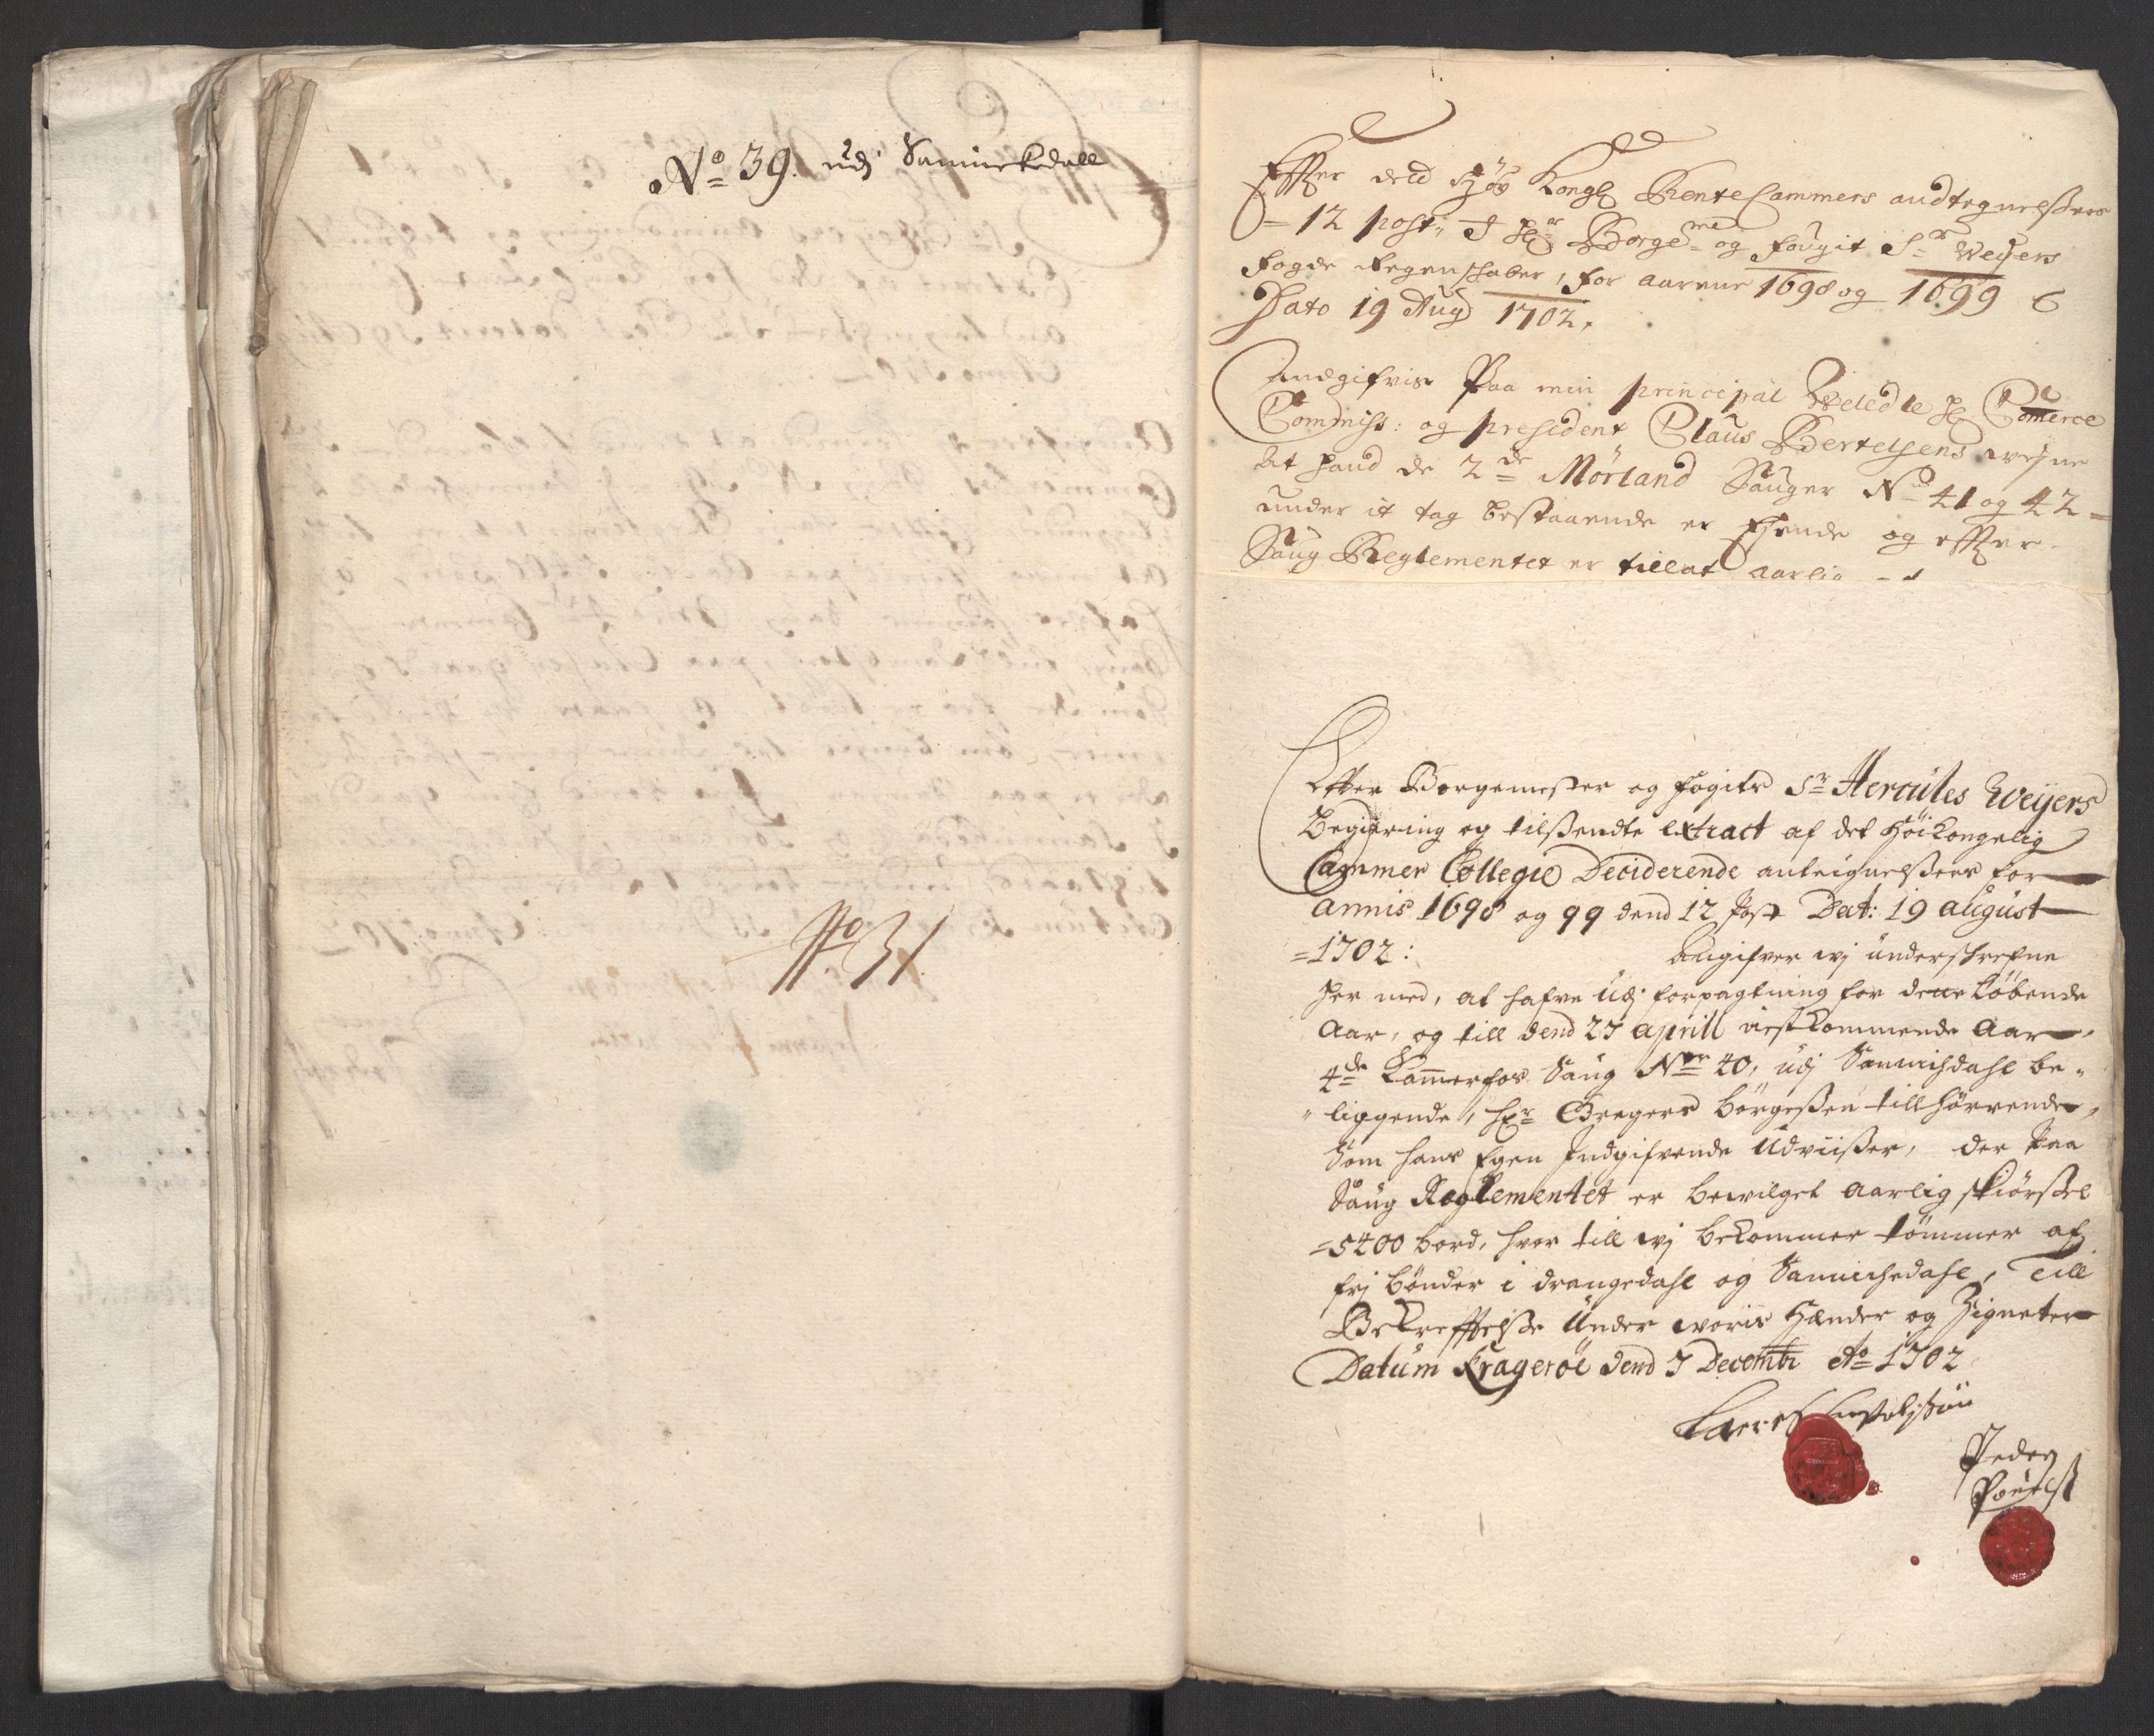 No 39. udj Sannickedall
No 31
Effter deld Høy Kongl RenteCammers andtegnelssers
= 12 post, I Hr Borgeme og fougit Sr Weyers
fogde Regenskaber, for aarene 1698 og 1699
Dato 19 Aug 1702.
Andgifvis Paa min principal Weledle Hr Comerce
Commiss: og president Claus Bertelsens wegne
At hand de 2de Mörland Sauger No 41 og 42 =
under it tag bestaaende er Ejende og effter
Saug Reglementet er tillat aarlig
Effter Borgemester og fogits Sr Hercules Weyers
Begiæring og tilsendte Extract af det Høikongelig
Cammer Collegie Deciderende anteignelsser for
annis 1698 og 99 dend 12 Post Dat: 19 august
= 1702:
Angifver wj underskrefne
her med, at hafve udj forpagtning for dette Löbende
Aar, og till dend 27 aprill nestkommende Aar,
4de Kammerfos Saug No 40, udj Sannichdahl be-
liggende, Hr Gregers börgessen tillhörrende,
Som hans Egen Indgifvende Udviisser, der Paa
Saug Reglementet er bewilget Aarlig skiörssel
= 5400 bord, hvor till wj bekommer tömmer af
frj bönder i Drangedahl og Sannichedahl, Till
Bekreffelsse Under woris Hænder og Zigneter
Datum Kragerøe dend 7 Decembr Ao 1702
Peder
Pouelss